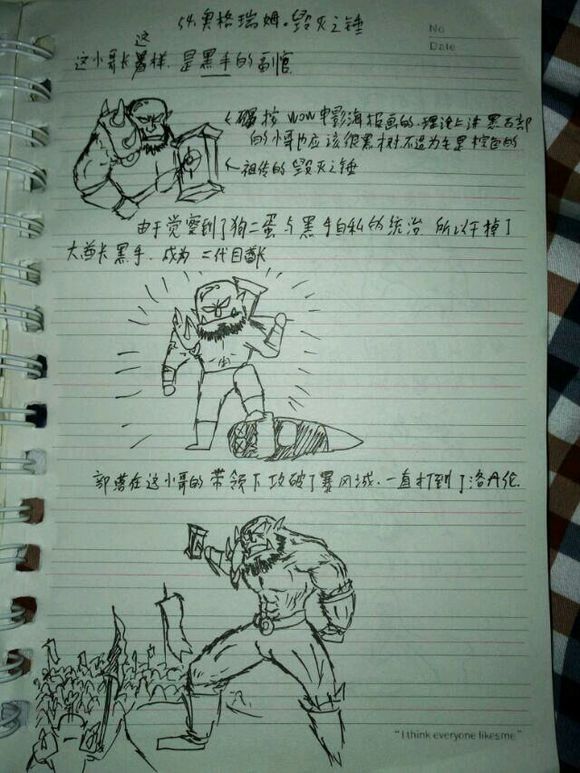 54.奥格瑞姆·毁灭之锤
No
Date
这
这小哥长着样.是黑手的副官
按WOW电影海报画的.理论上讲黑石部
的小哥也应该很黑才对.不过为毛是棕色的
祖传的毁灭之锤
由于觉察到了狗二蛋与黑手自私的统治 所以干掉了
大酋长黑手.成为二代目酋长
部落在这小哥的带领下攻破了暴风城.一直打到了洛丹伦
"I think everyone likes me"